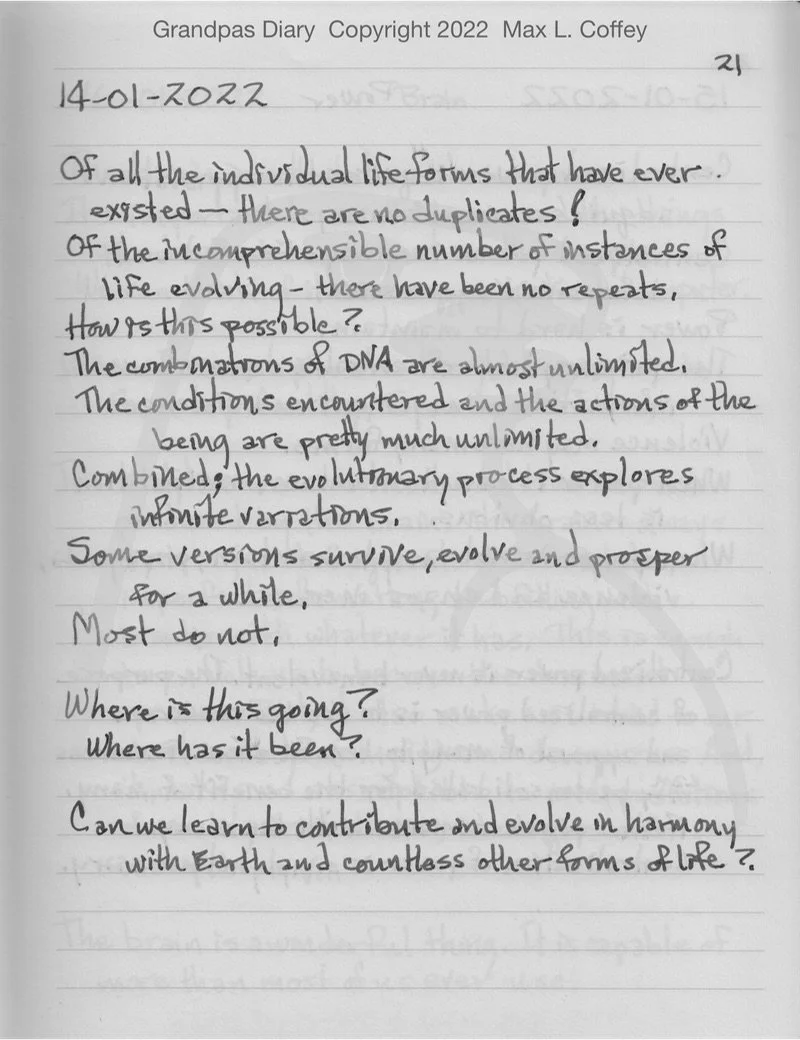 Grandpas Diary Copyright 2022 Max L. Coffey
21
14-01-2022
Of all the individual life forms that have ever
existed — there are no duplicates!
Of the incomprehensible number of instances of
life evolving - there have been no repeats.
How is this possible?
The combinations of DNA are almost unlimited.
The conditions encountered and the actions of the
being are pretty much unlimited.
Combined; the evolutionary process explores
infinite variations.
Some versions survive, evolve and prosper
for a while.
Most do not.
Where is this going?
Where has it been?
Can we learn to contribute and evolve in harmony
with Earth and countless other forms of life?